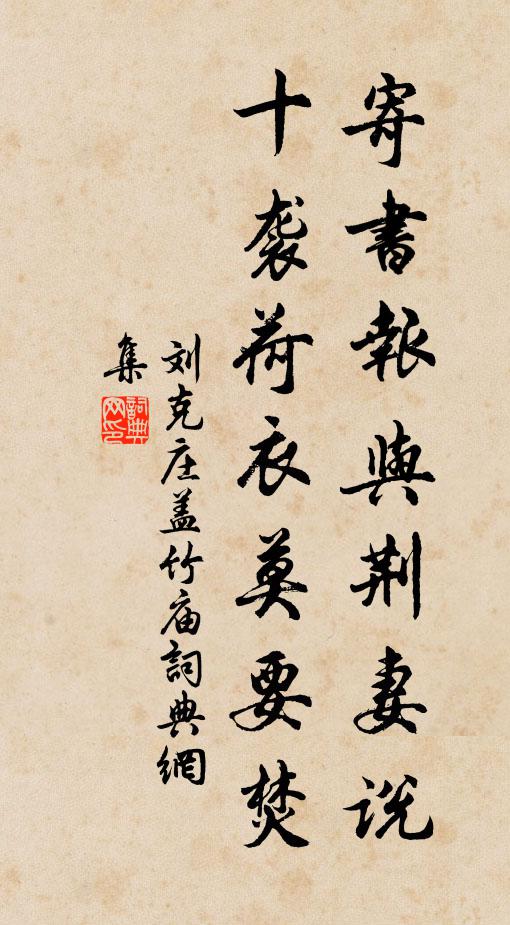 寄書報與荆妻説
十袭荷衣莫要焚
刘克庄盖竹庙詞典網
集
詞典网印